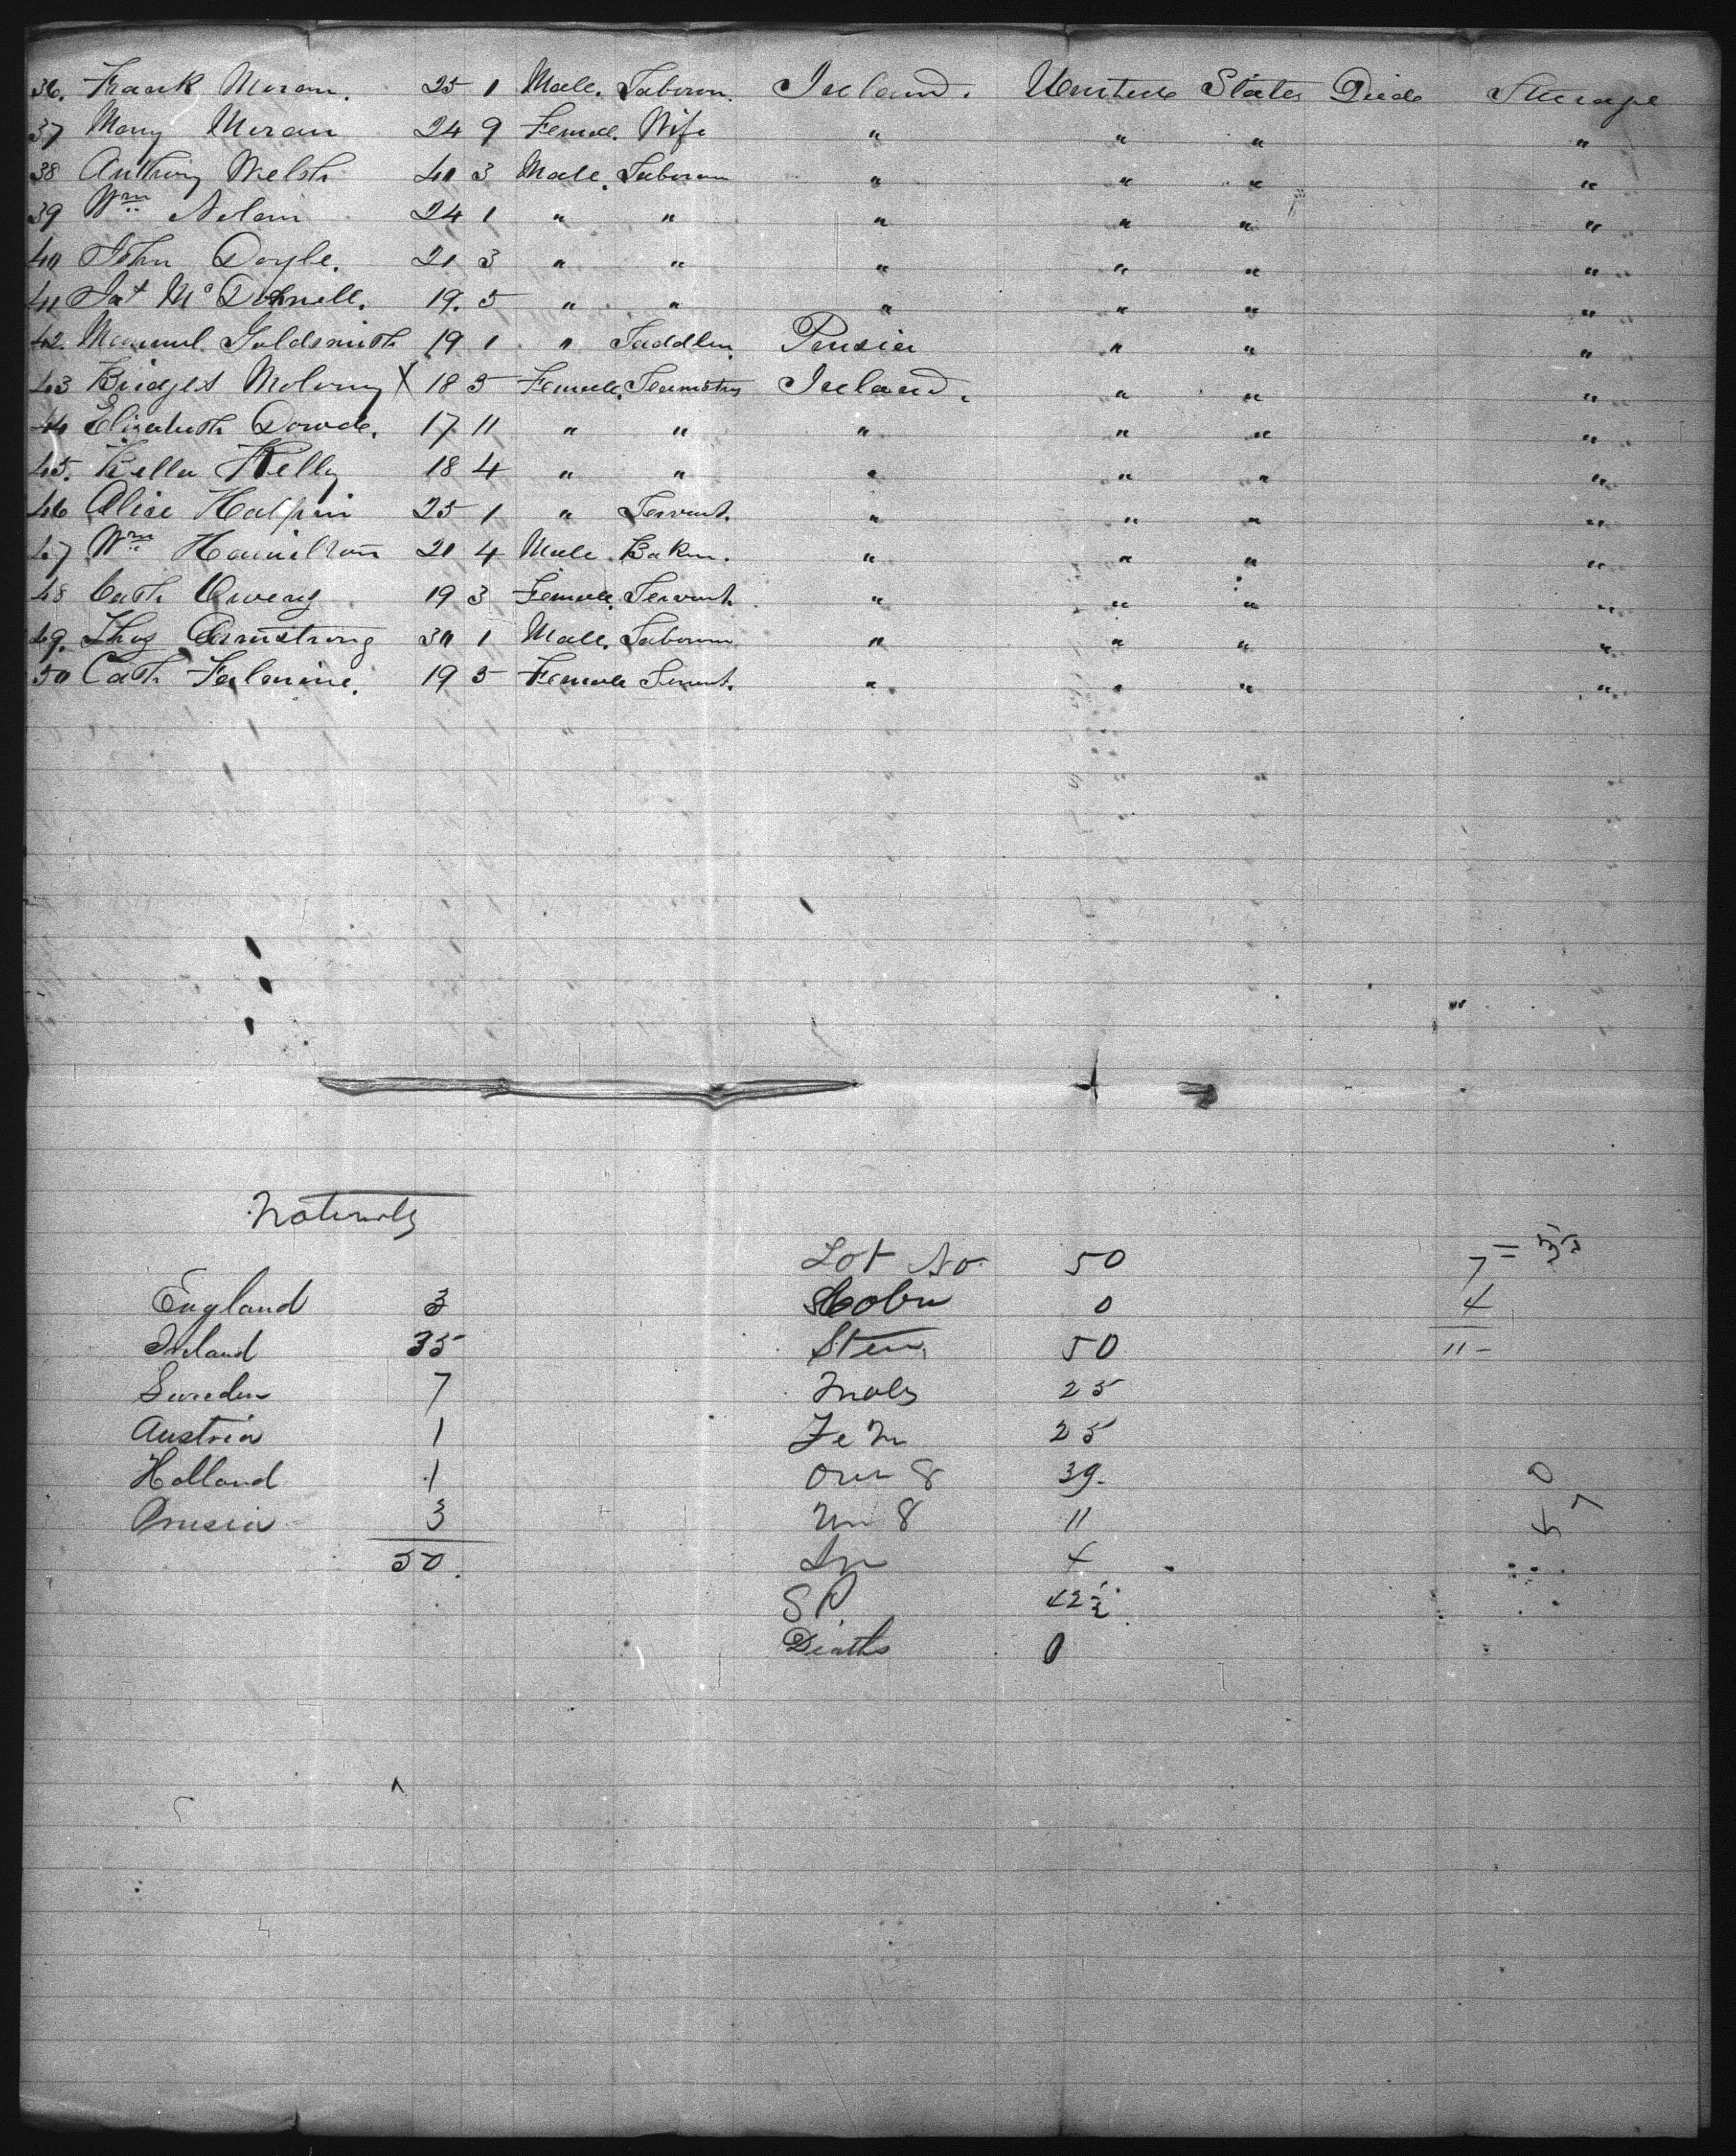 36. Frank Moran. 25 1 Male. Laborer. Ireland. United States Died Steerage
37 Mary Moran 24 9 Female. Wife " " " "
38 Anthony Welsh 40 3 Male. Laborer " " " "
39 Wm Nolan 24 1 " " " " " "
40 John Doyle. 21 3 " " " " " "
41 Pat McDonnell. 19. 5 " " " " " "
42. Goldsmith 19 1 " Saddler. Prusia " " "
43 Bridget Molony X 18 5 Female. Seamstrs Ireland. " " "
44 Elizabeth Dowde. 17 11 " " " " " "
45. Bella Kelly 18 4 " " " " " "
46 Alice Halpin 25 1 " Servant. " " " "
47 Wm Hamilton 21 4 Male. Baker. " " " "
48 Cath Owens 19 3 Female. Servant " " " "
49. Thos Armstrong 30 1 Male. Laborer " " " "
50 Cath 19 5 Female Servant. " " " "
Nativity
Tot No 50 7 =
England 3 Cabin 0 4
Ireland 35 Steer 50 11 -
Sweden 7 Males 25
Austria 1 Fem 25
Holland 1 Over 8 39. 0
Prusia 3 Un 8 11
50. 4
S P 42½
Deaths 0